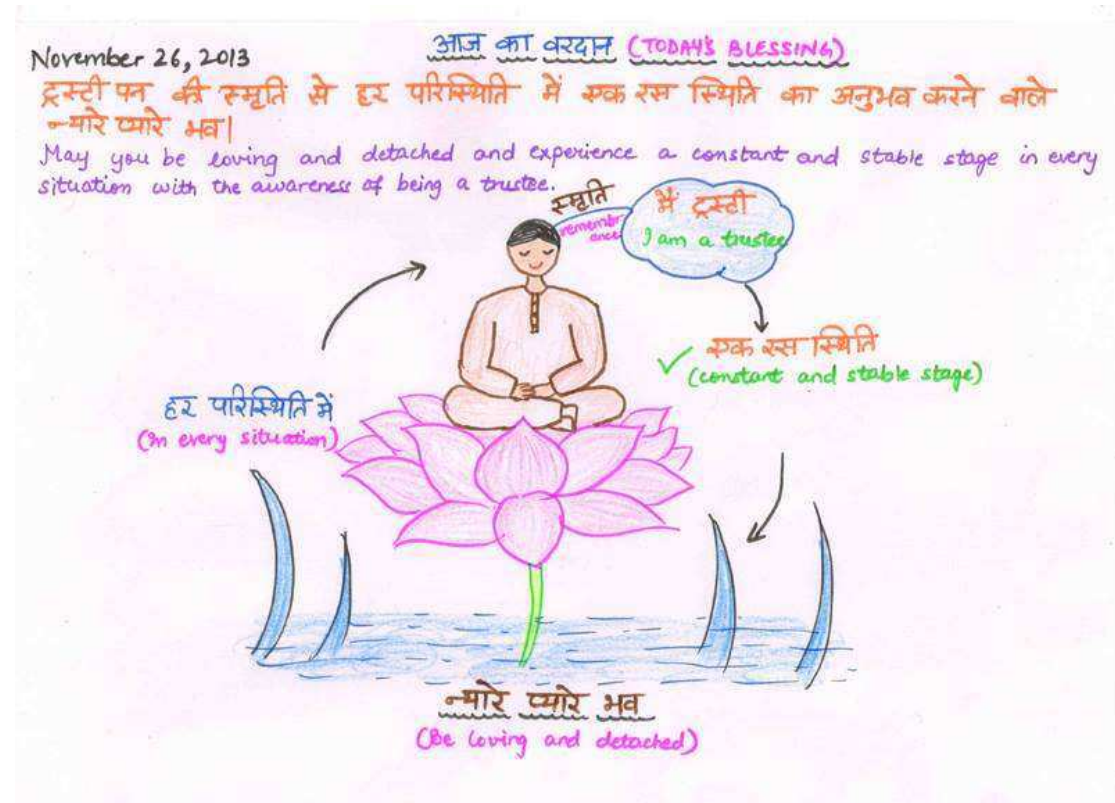 November 26, 2013
आज का वरदान (TODAY'S BLESSING)
ट्रस्टी पन की स्मृति से हर परिस्थिति में एक रस स्थिति का अनुभव करने वाले
न्यारे प्यारे भव|
May you be loving and detached and experience a constant and stable stage in every
situation with the awareness of being a trustee.
स्मृति
remembr-
ance
मैं ट्रस्टी
I am a trustee
एक रस स्थिति
(constant and stable stage)
हर परिस्थिति में
(In every situation)
न्यारे प्यारे भव
(Be loving and detached)